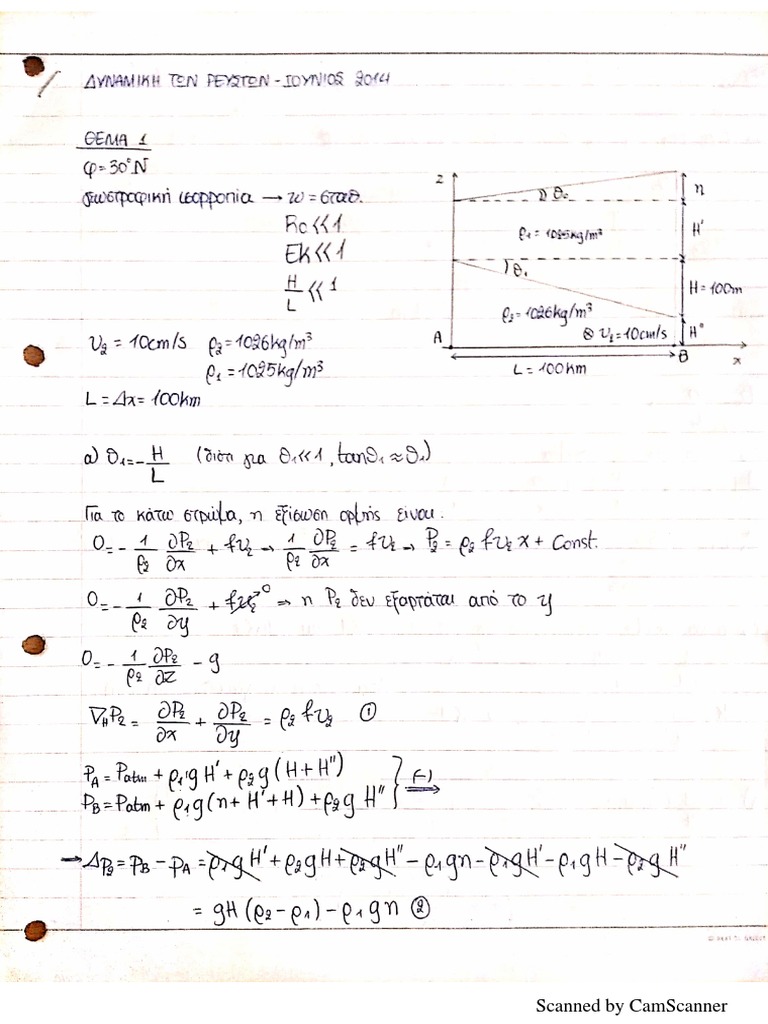 ΔΥΝΑΜΙΚΗ ΤΩΝ ΡΕΥΣΤΩΝ - ΙΟΥΝΙΟΣ 2014
ΘΕΜΑ 1
φ = 30°N
γεωστροφική ισορροπία → w = σταθ.
Ro << 1
EK << 1
H/L << 1
z
θ₀
n
ρ₁ = 1025kg/m³
H'
θ₁
H = 100m
ρ₂ = 1026kg/m³
⊗ υ₂ = 10cm/s
H"
A
B
x
L = 100km
υ₂ = 10cm/s ρ₂ = 1026kg/m³
ρ₁ = 1025kg/m³
L = Δx = 100km
α) θ₁ = - H/L (διότι για θ₁ << 1, tanθ₁ ≈ θ₁)
Για το κάτω στρώμα, η εξίσωση ορμής είναι:
0 = - 1/ρ₂ ∂P₂/∂x + fυ₂ → 1/ρ₂ ∂P₂/∂x = fυ₂ → P₂ = ρ₂ fυ₂ x + Const.
0 = - 1/ρ₂ ∂P₂/∂y + → η P₂ δεν εξαρτάται από το y
0 = - 1/ρ₂ ∂P₂/∂z - g
∇HP₂ = ∂P₂/∂x + ∂P₂/∂y = ρ₂ fυ₂ ①
PA = Patm + ρ₁gH' + ρ₂g(H + H")
PB = Patm + ρ₁g(n + H' + H) + ρ₂g H" } (-) ⇒
→ ΔP₂ = PB - PA = ρ₁gH' + ρ₂gH + ρ₂gH" - ρ₁gn - ρ₁gH' - ρ₁gH - ρ₂gH"
= gH(ρ₂ - ρ₁) - ρ₁gn ②
Scanned by CamScanner